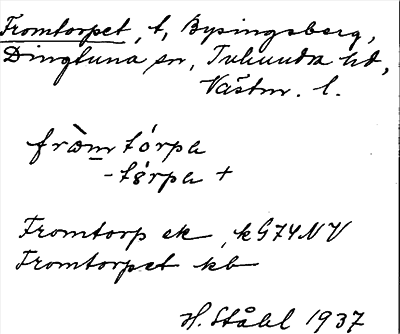 Fromtorpet, t, Bysingsberg,
Dingtuna sn, Tuhundra hd,
Västm. l.
fròmtórpa
-tórpa +
Fromtorp ek, kG74NV
Fromtorpet kb
H. Ståhl 1937